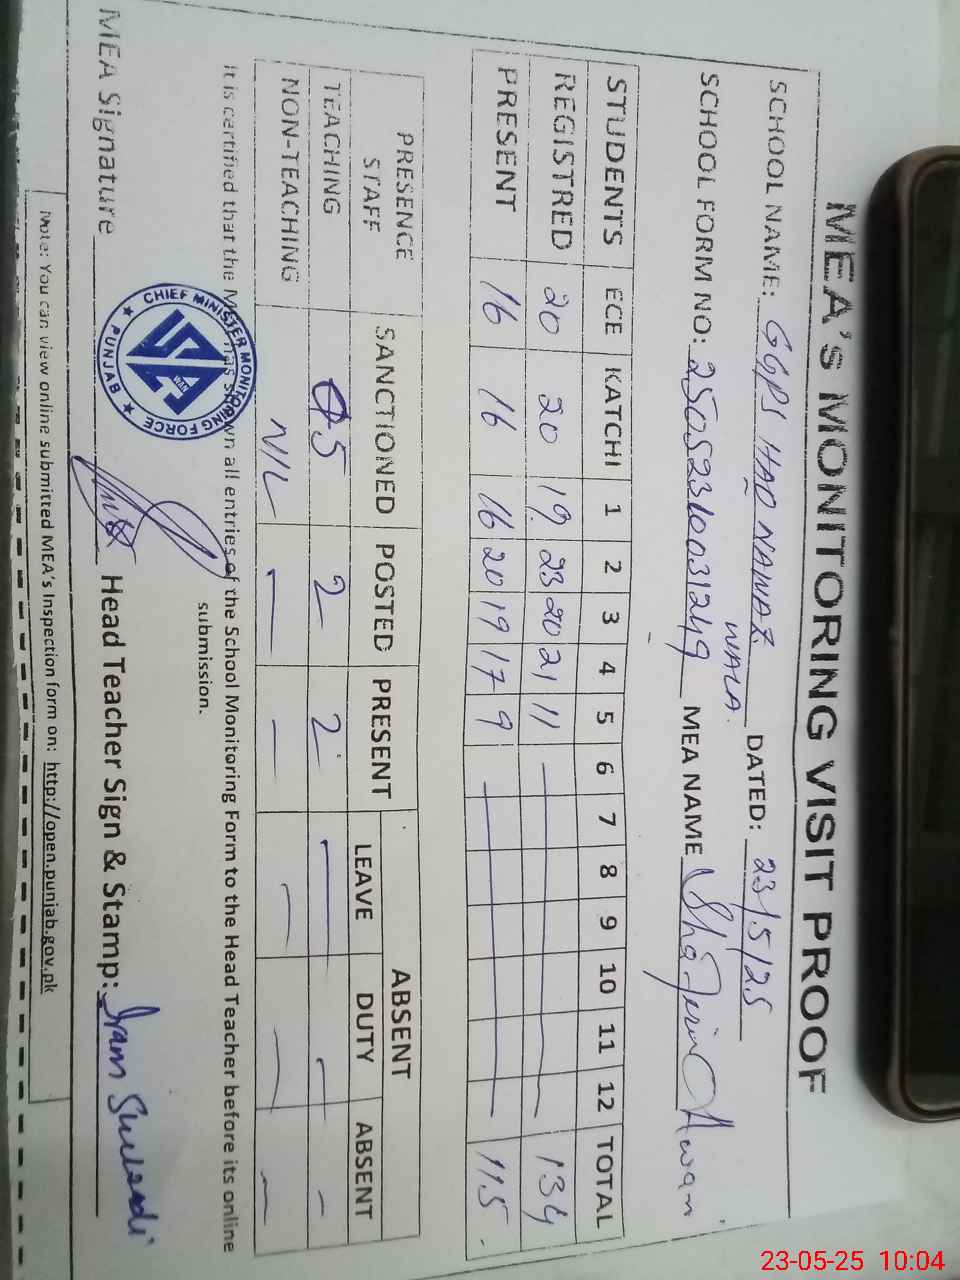 MEA's MONITORING VISIT PROOF
SCHOOL NAME: GGPS HAQ NAWAZ WALA. DATED: 23/5/25
SCHOOL FORM NO: 25052310031249 MEA NAME Awan
STUDENTS ECE KATCHI 1 2 3 4 5 6 7 8 9 10 11 12 TOTAL
REGISTRED 20 20 19 23 20 21 11 134
PRESENT 16 16 16 20 19 17 9 115
PRESENCE STAFF SANCTIONED POSTED PRESENT ABSENT
LEAVE DUTY ABSENT
TEACHING 05 2 2
NON-TEACHING NIL
It is certified that the MEA has shown all entries of the School Monitoring Form to the Head Teacher before its online
submission.
CHIEF MINISTER MONITORING FORCE
★ PUNJAB ★
MEA Signature Head Teacher Sign & Stamp: Iram
Note: You can view online submitted MEA's Inspection form on: http://open.punjab.gov.pk
23-05-25 10:04